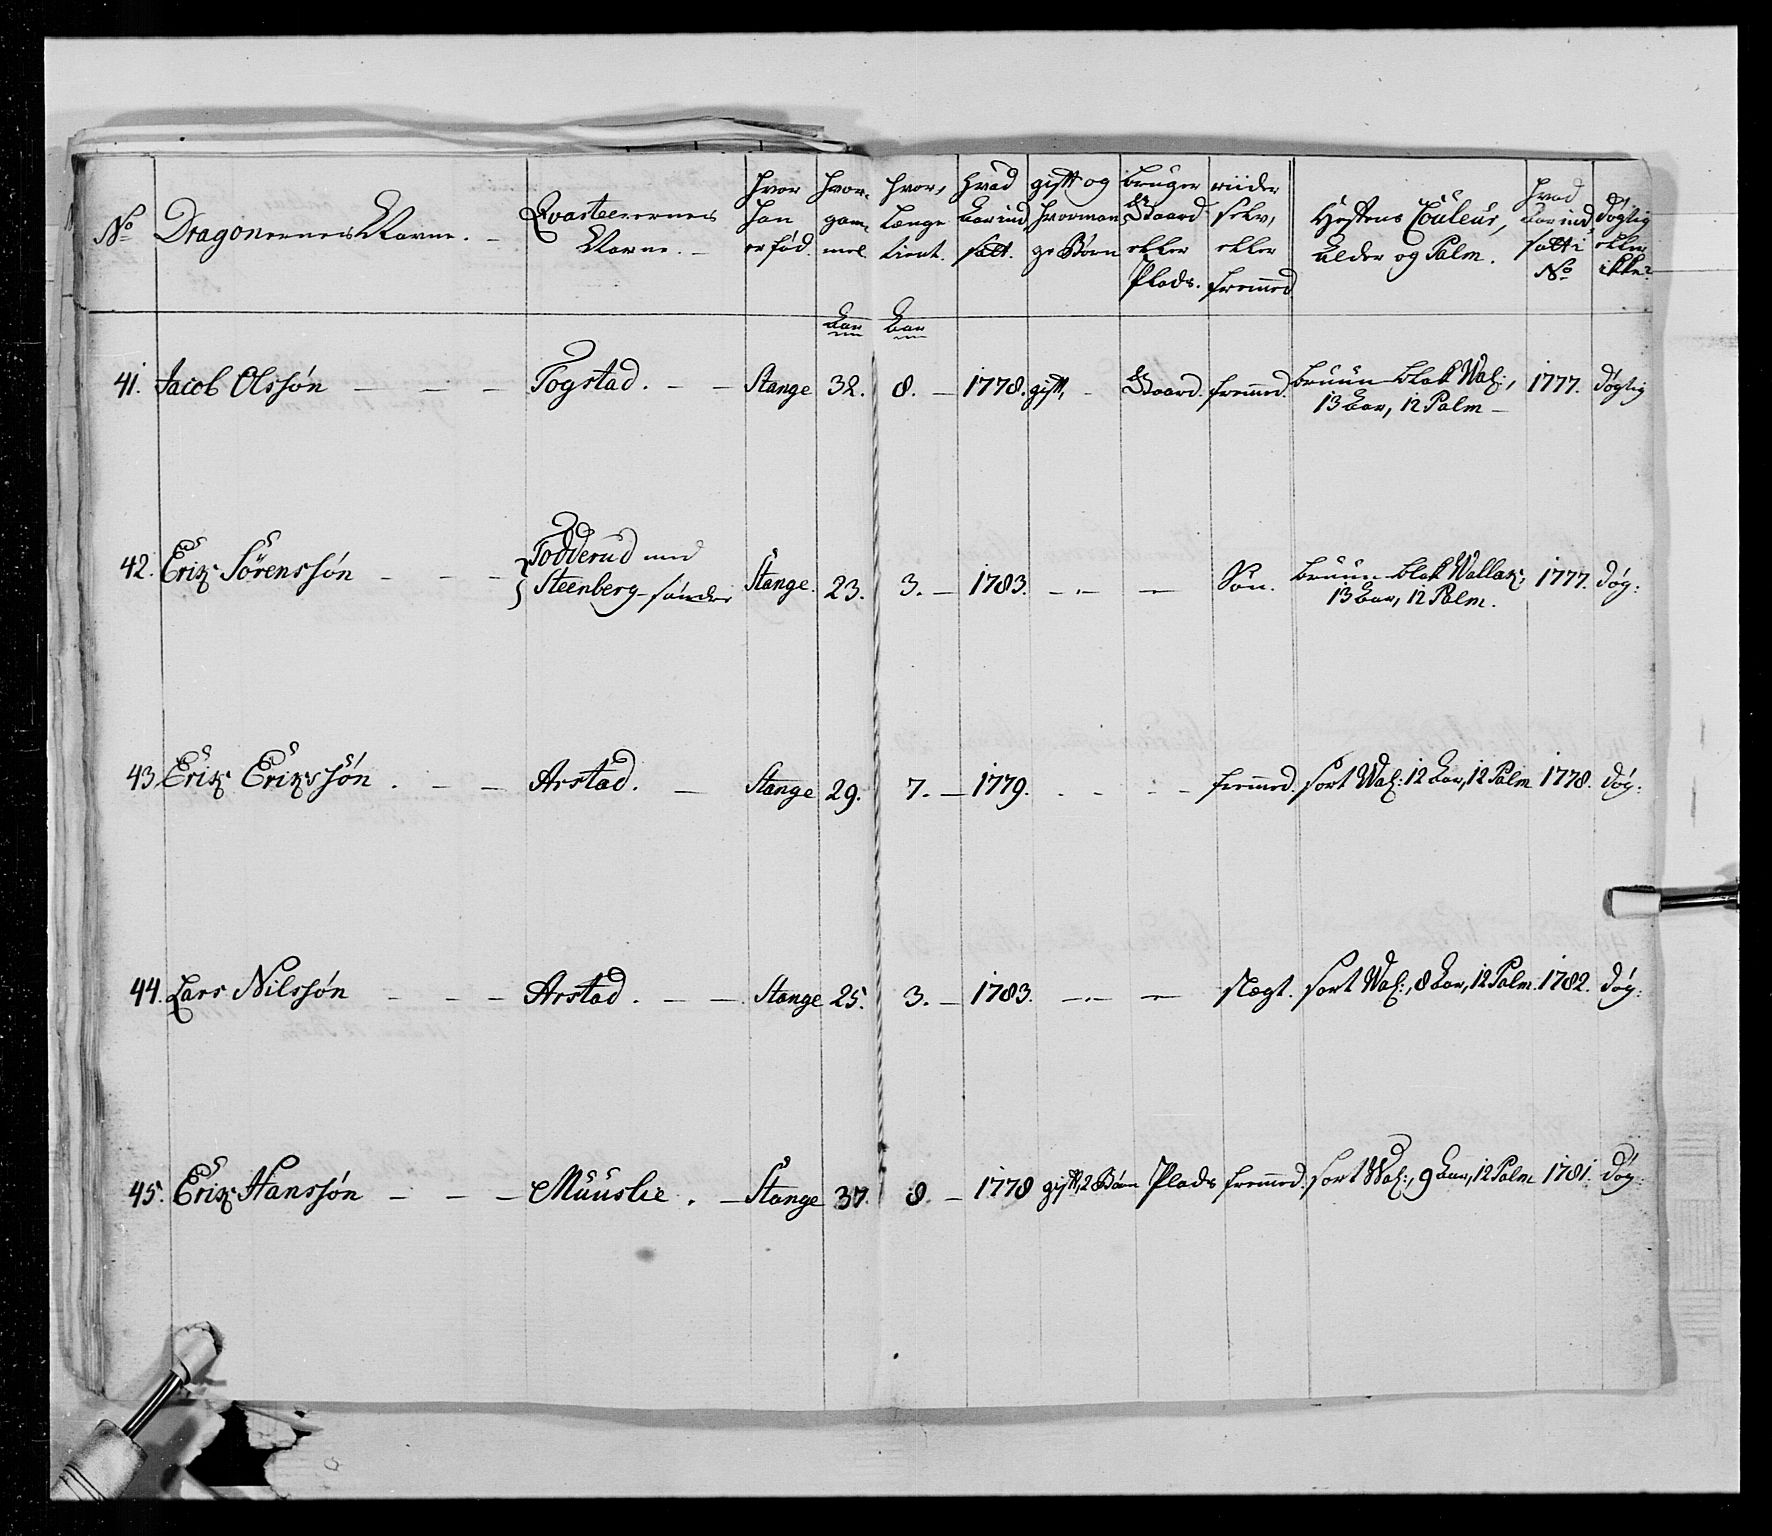 No
Dragonernes Navne.
Qvarteerernes
Navne.
hvor
han
er fød.
hvor-
gam-
mel
hvor-
længe
tient.
hvad
Aar ind-
satt.
gift og
hvorman
ge Børn
bruger
Gaard
eller
Plads.
riider
selv,
eller
fremmed
Hestens Couleur,
Alder og Palm.
hvad
Aar ind-
satt i
No
døgtig
eller
ikke?
Aar
Aar
41. Jacob Olssøn — — — Fogstad. — — Stange 32. 8. — 1778. gift, - Gaard. fremmed. bruun blak Wal:, 1777. døgtig
13 Aar, 12 Palm —
42. Erik Sörenssøn - - - Todderud med
Steenberg søndre Stange. 23. 3. — 1783. — — Søn. bruun blak Wallak, 1777. døg:
13 Aar, 12 Palm.
43. Erik Erikssøn . — — Arstad. — Stange 29. 7. — 1779. - - - - fremmed. sort Wal: 12 Aar, 12 Palm 1778. døg:
44. Lars Nilssøn - - — Arstad. — — Stange 25. 3. — 1783. — — Slegt. sort Wal:, 8 Aar, 12 Palm. 1782. døg:
45. Erik Hanssøn — — — Muuslie. — Stange 37. 8. — 1778 gift, 2 Børn Plads fremmed. sort Wal:, 9 Aar, 12 Palm 1781. døg: